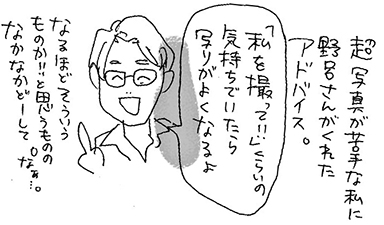 超写真が苦手な私に
野呂さんがくれた
アドバイス。
「私を撮って!!」くらいの
気持ちでいたら
写りがよくなるよ
なるほどそういう
ものか!!と思うものの
なかなかどーして
。なぁ…。